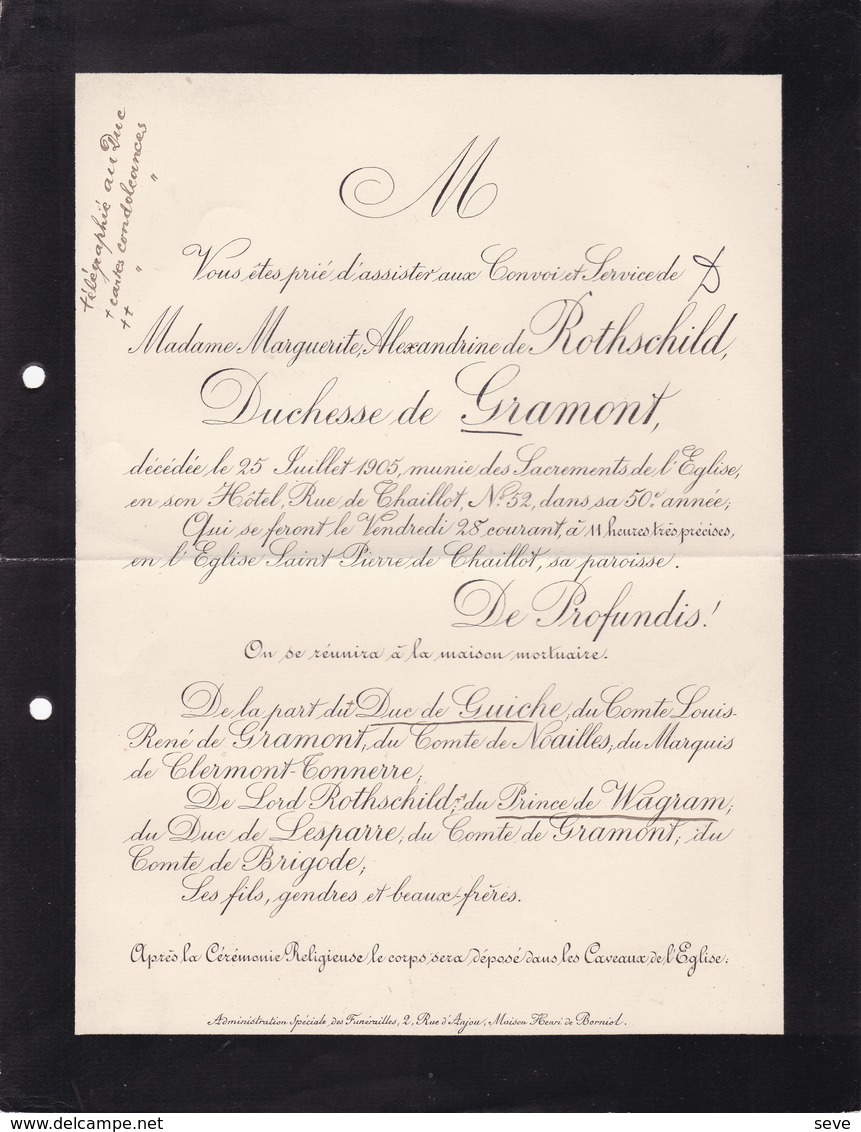 télégraphié au Duc
+ cartes condoléances
++ " "
M
Vous êtes prié d'assister aux Convoi et Service de
Madame Marguerite, Alexandrine de Rothschild,
Duchesse de Gramont,
décédée le 25 Juillet 1905, munie des Sacrements de l'Eglise,
en son Hôtel, Rue de Chaillot, No. 52, dans sa 50e. année;
Qui se feront le Vendredi 28 courant, à 11 heures très précises,
en l'Eglise Saint Pierre de Chaillot, sa paroisse.
De Profundis!
On se réunira à la maison mortuaire.
De la part du Duc de Guiche, du Comte Louis-
René de Gramont, du Comte de Noailles, du Marquis
de Clermont-Tonnerre;
De Lord Rothschild, du Prince de Wagram,
du Duc de Lesparre, du Comte de Gramont, du
Comte de Brigode;
Ses fils, gendres et beaux-frères.
Après la Cérémonie Religieuse le corps sera déposé dans les Caveaux de l'Eglise.
Administration Spéciale des Funérailles, 2, Rue d'Anjou, Maison Henri de Borniol.
www.delcampe.net
seve